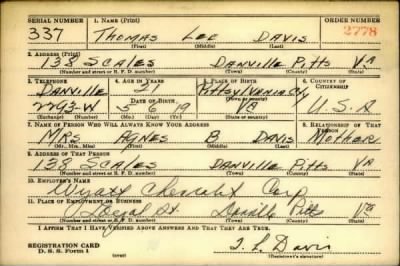 SERIAL NUMBER 1. NAME (Print) ORDER NUMBER
337 THOMAS LEE DAVIS 2778
(First) (Middle) (Last)
2. ADDRESS (Print)
138 SCALES DANVILLE PITTS VA
(Number and street or R. F. D. number) (Town) (County) (State)
3. TELEPHONE 4. AGE IN YEARS 5. PLACE OF BIRTH 6. COUNTRY OF CITIZENSHIP
DANVILLE 21 PITTSYLVANIA
DATE OF BIRTH (Town or county)
2293-W 5 6 19 VA U.S.A
(Exchange) (Number) (Mo.) (Day) (Yr.) (State or country)
7. NAME OF PERSON WHO WILL ALWAYS KNOW YOUR ADDRESS 8. RELATIONSHIP OF THAT PERSON
MRS AGNES B DAVIS MOTHER
(Mr., Mrs., Miss) (First) (Middle) (Last)
9. ADDRESS OF THAT PERSON
138 SCALES DANVILLE PITTS VA
(Number and street or R. F. D. number) (Town) (County) (State)
10. EMPLOYER'S NAME
Corp
11. PLACE OF EMPLOYMENT OR BUSINESS
St. Danville Pitts Va
(Number and street or R. F. D. number) (Town) (County) (State)
I AFFIRM THAT I HAVE VERIFIED ABOVE ANSWERS AND THAT THEY ARE TRUE.
REGISTRATION CARD
D. S. S. Form 1 T. L. Davis
(over) (Registrant's signature)